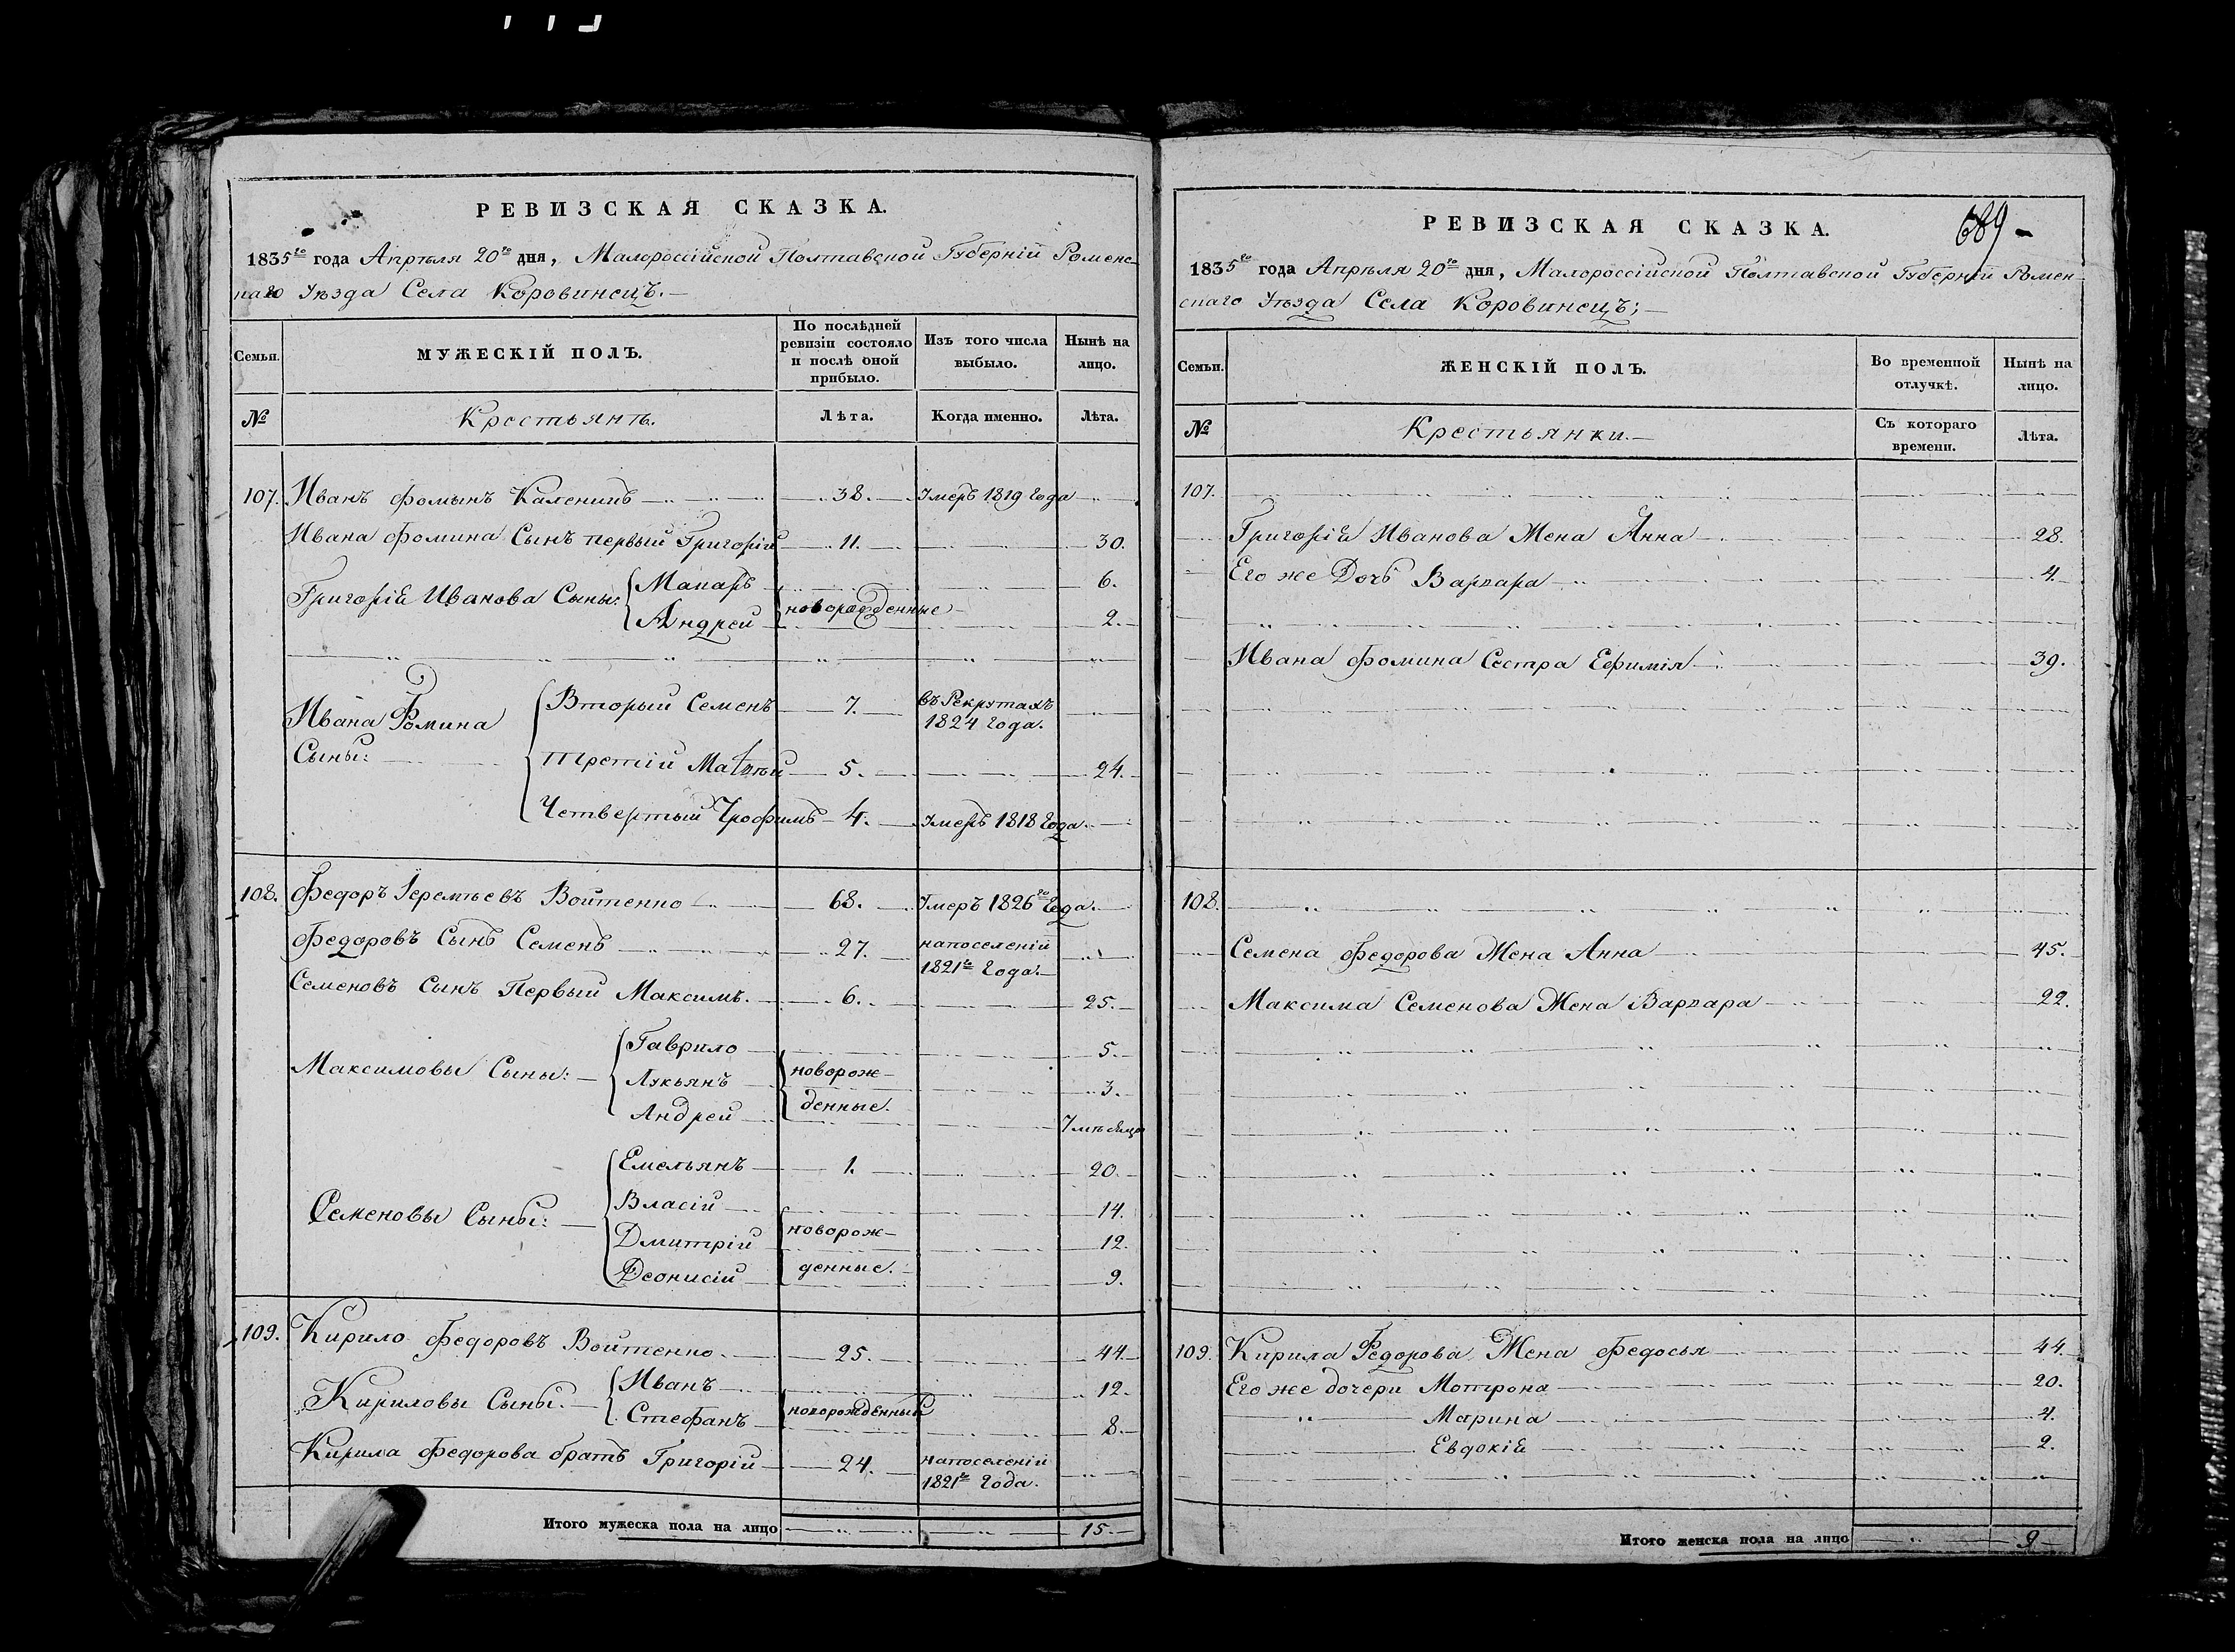 РЕВИЗСКАЯ СКАЗКА.
1835го года Апрѣля 20го дня, Малороссійской Полтавской Губерніи Роменс-
каго Уѣзда Села Коровинецъ.—
Семьи. МУЖЕСКІЙ ПОЛЪ. По послѣдней ревизіи состояло и послѣ оной прибыло. Изъ того числа выбыло. Нынѣ на лицо.
№ Крестьянѣ. Лѣта. Когда именно. Лѣта.
107. Иванъ Фоминъ 38. Умеръ 1819 года
Ивана Фомина Сынъ первый Григорій 11. 30.
Григорія Иванова Сыны: Макаръ 6.
Андрей новорожденные 2.
Ивана Фомина Сыны: Вторый Семенъ 7. въ Рекрутахъ 1824 года.
Третій Матвѣй 5. 24.
Четвертый Трофимъ 4. Умеръ 1818 года.
108. Федоръ Іеремѣевъ Войтенко 68. Умеръ 1826го Года.
Федоровъ Сынъ Семенъ 27. на поселеніи 1821го Года.
Семеновъ Сынъ Первый Максимъ. 6. 25.
Максимовы Сыны: Гаврило 5.
Лукьянъ новорож- 3.
Андрей денные. 7 мѣсяцъ
Семеновы Сыны: Емельянъ 1. 20.
Власій 14.
Дмитрій новорож- 12.
Деонисій денные. 9.
109. Кирило Федоровъ Войтенко. 25. 44.
Кириловы Сыны: Иванъ 12.
Стефанъ новорожденные 8.
Кирила Федорова братъ Григорій 24. на поселеніи 1821го Года.
Итого мужеска пола на лицо 15.
РЕВИЗСКАЯ СКАЗКА.
689
1835го года Апрѣля 20го дня, Малороссійской Полтавской Губерніи Ромен-
скаго Уѣзда Села Коровинецъ;—
Семьи. ЖЕНСКІЙ ПОЛЪ. Во временной отлучкѣ. Нынѣ на лицо.
№ Крестьянки.— Съ котораго времени. Лѣта.
107.
Григорія Иванова Жена Анна 28.
Его же Дочь Варвара 4.
Ивана Фомина Сестра Ефимія 39.
108.
Семена Федорова Жена Анна 45.
Максима Семенова Жена Варвара 22.
109. Кирила Федорова Жена Федосья 44.
Его же дочери Мотрона 20.
Марина 4.
Евдокія 2.
Итого женска пола на лицо 9